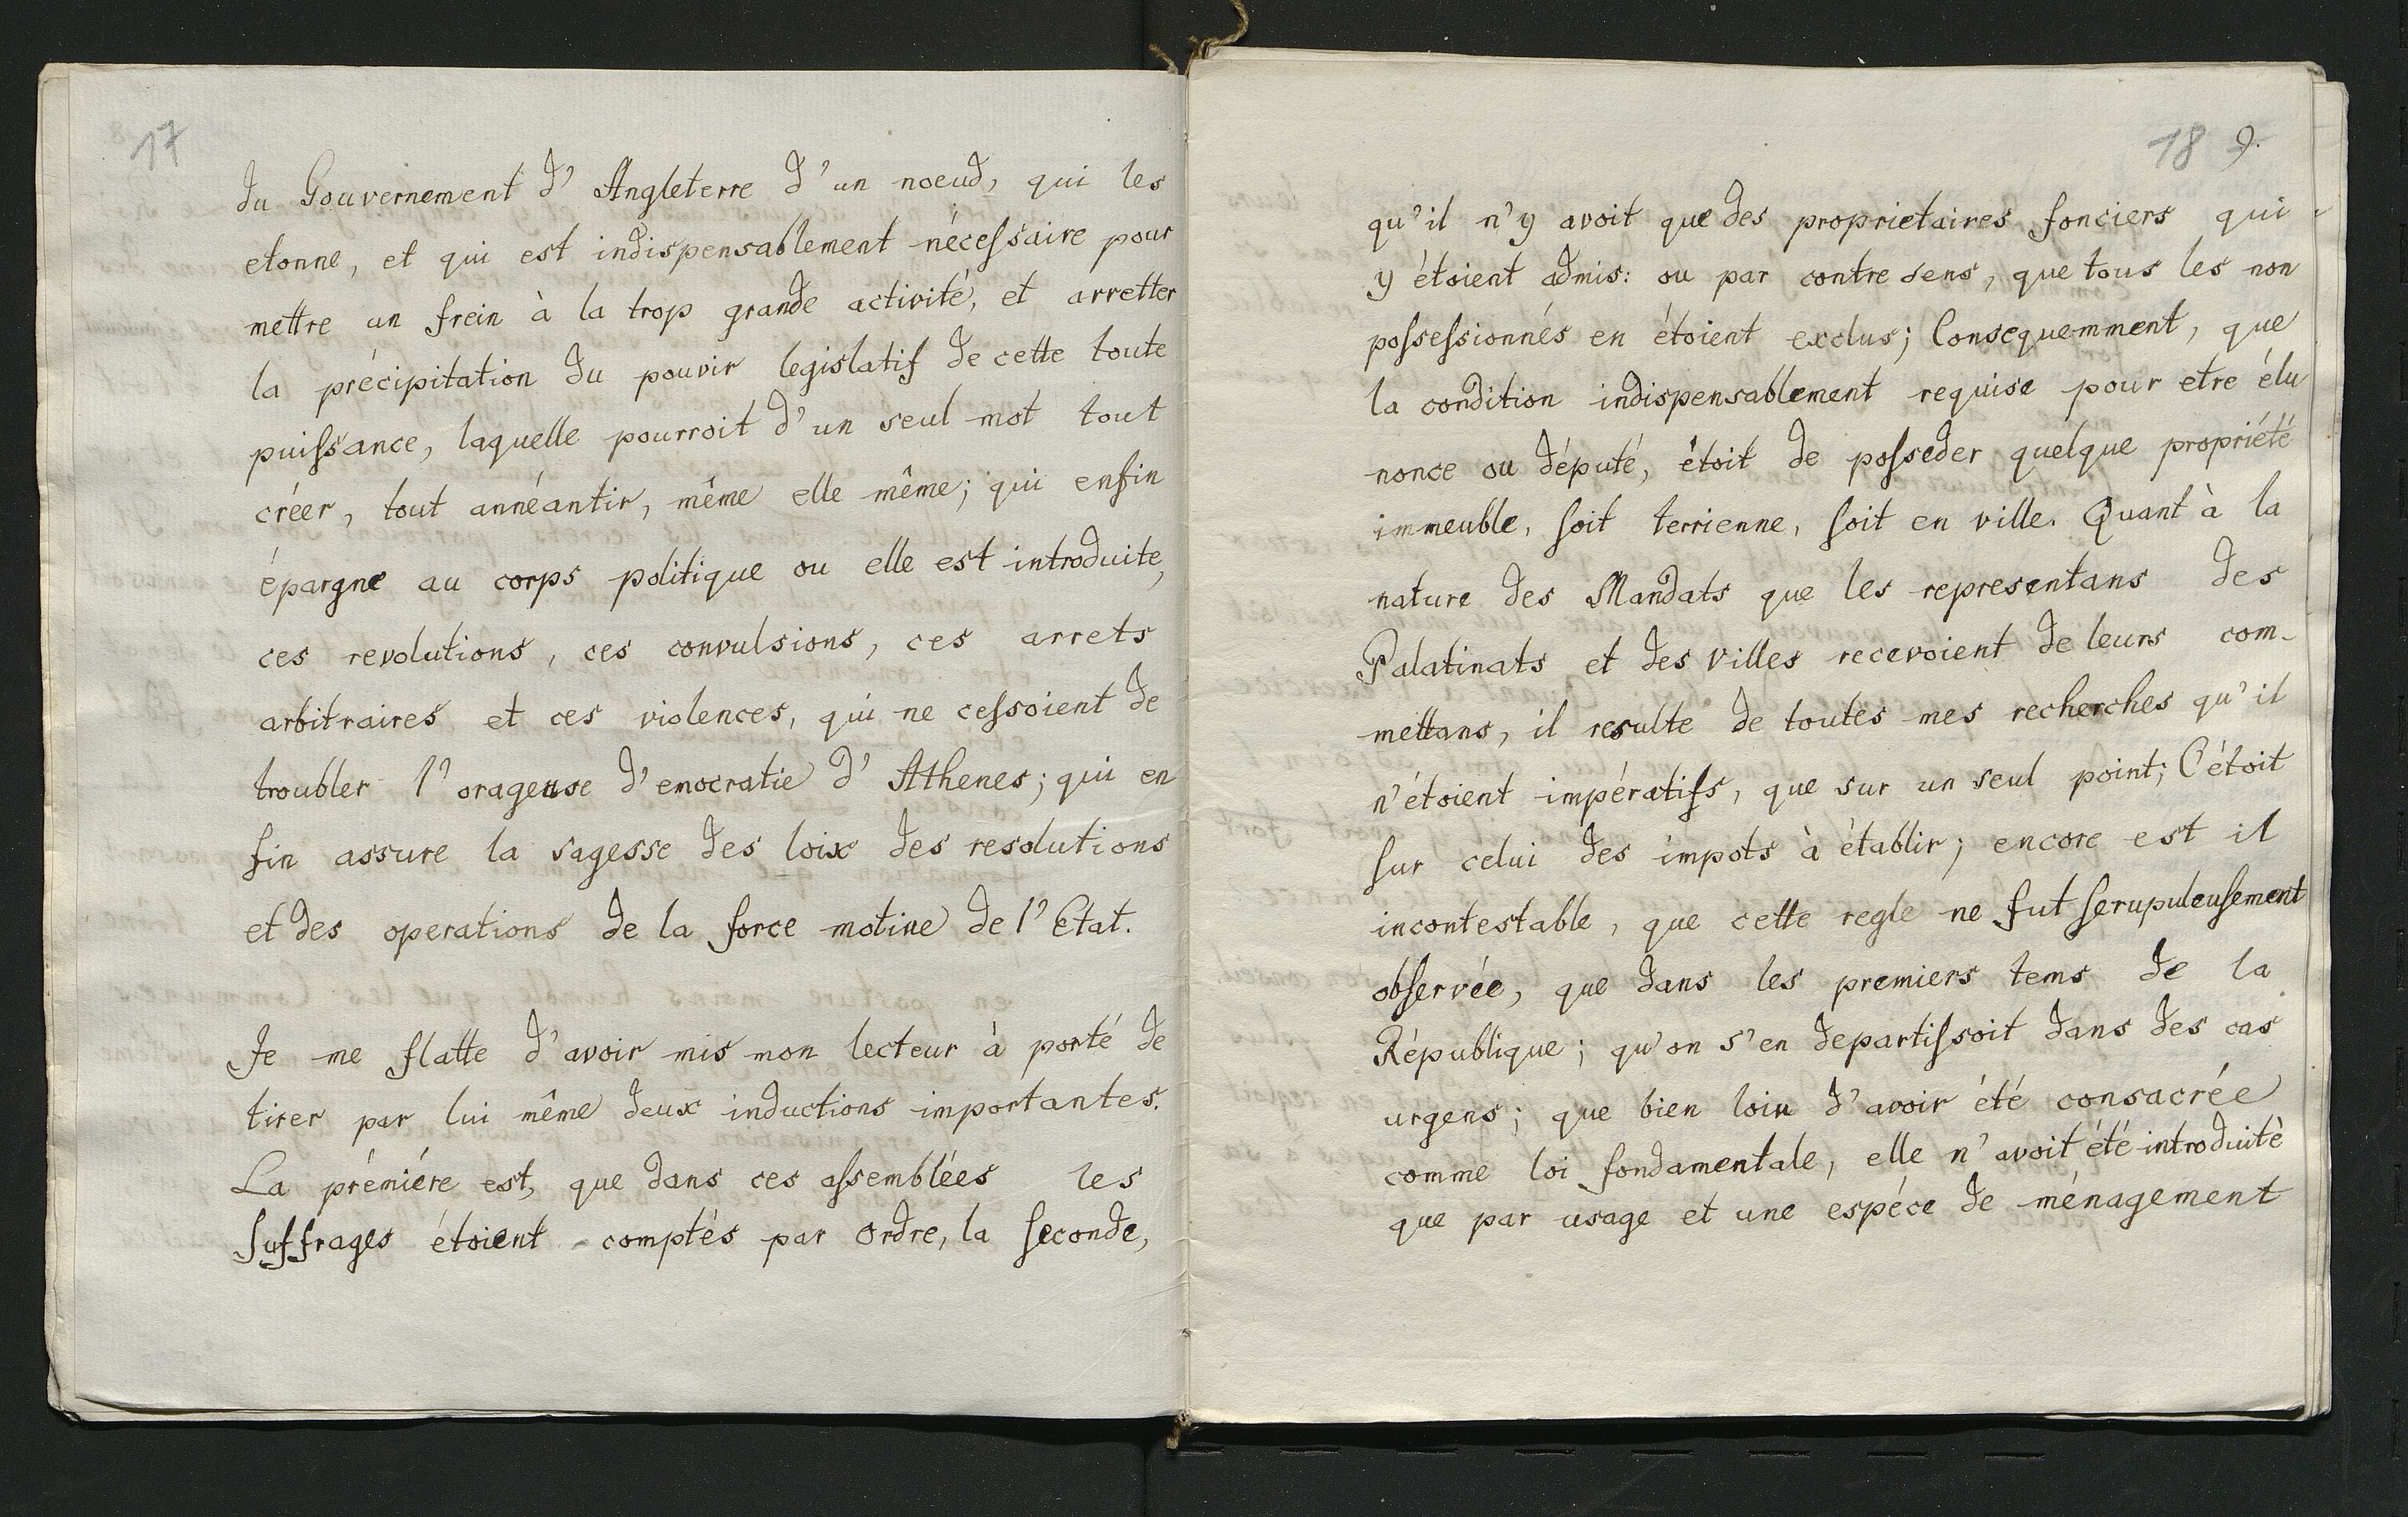 17
du Gouvernement d' Angleterre d'un noeud, qui les
etonne, et qui est indispensablement nécessaire pour
mettre un frein à la trop grande activité, et arretter
la précipitation du pouvir legislatif de cette toute
puissance, laquelle pourroit d'un seul mot tout
créer, tout annéantir, même elle même; qui enfin
épargne au corps politique ou elle est introduite,
ces revolutions, ces convulsions, ces arrets
arbitraires et ces violences, qui ne cessoient de
troubler l'orageuse d'emocratie d' Athenes; qui en
fin assure la sagesse des loix des resolutions
et des operations de la force motive de l'Etat.
Je me flatte d'avoir mis mon lecteur à porté de
tirer par lui même deux inductions importantes.
La prémiére est, que dans ces assemblées les
suffrages étoient comptés par ordre, la seconde,
18 9.
qu'il n'y avoit que des proprietaires fonciers qui
y étoient admis: ou par contre sens, que tous les non
possessionnés en étoient exclus; Consequemment, que
la condition indispensablement requise pour etre élu
nonce ou député, étoit de posseder quelque propriété
immeuble, soit terrienne, soit en ville. Quant à la
nature des Mandats que les representans des
Palatinats et des villes recevoient de leurs com-
mettans, il resulte de toutes mes recherches qu'il
n'étoient impératifs, que sur un seul point; C'étoit
sur celui des impots à établir; encore est il
incontestable, que cette regle ne fut serupuleusement
observée, que dans les premiers tems de la
République; qu'on s'en departissoit dans des cas
urgens; que bien loin d'avoir été consacrée
comme loi fondamentale, elle n'avoit été introduité
que par usage et une espéce de ménagement